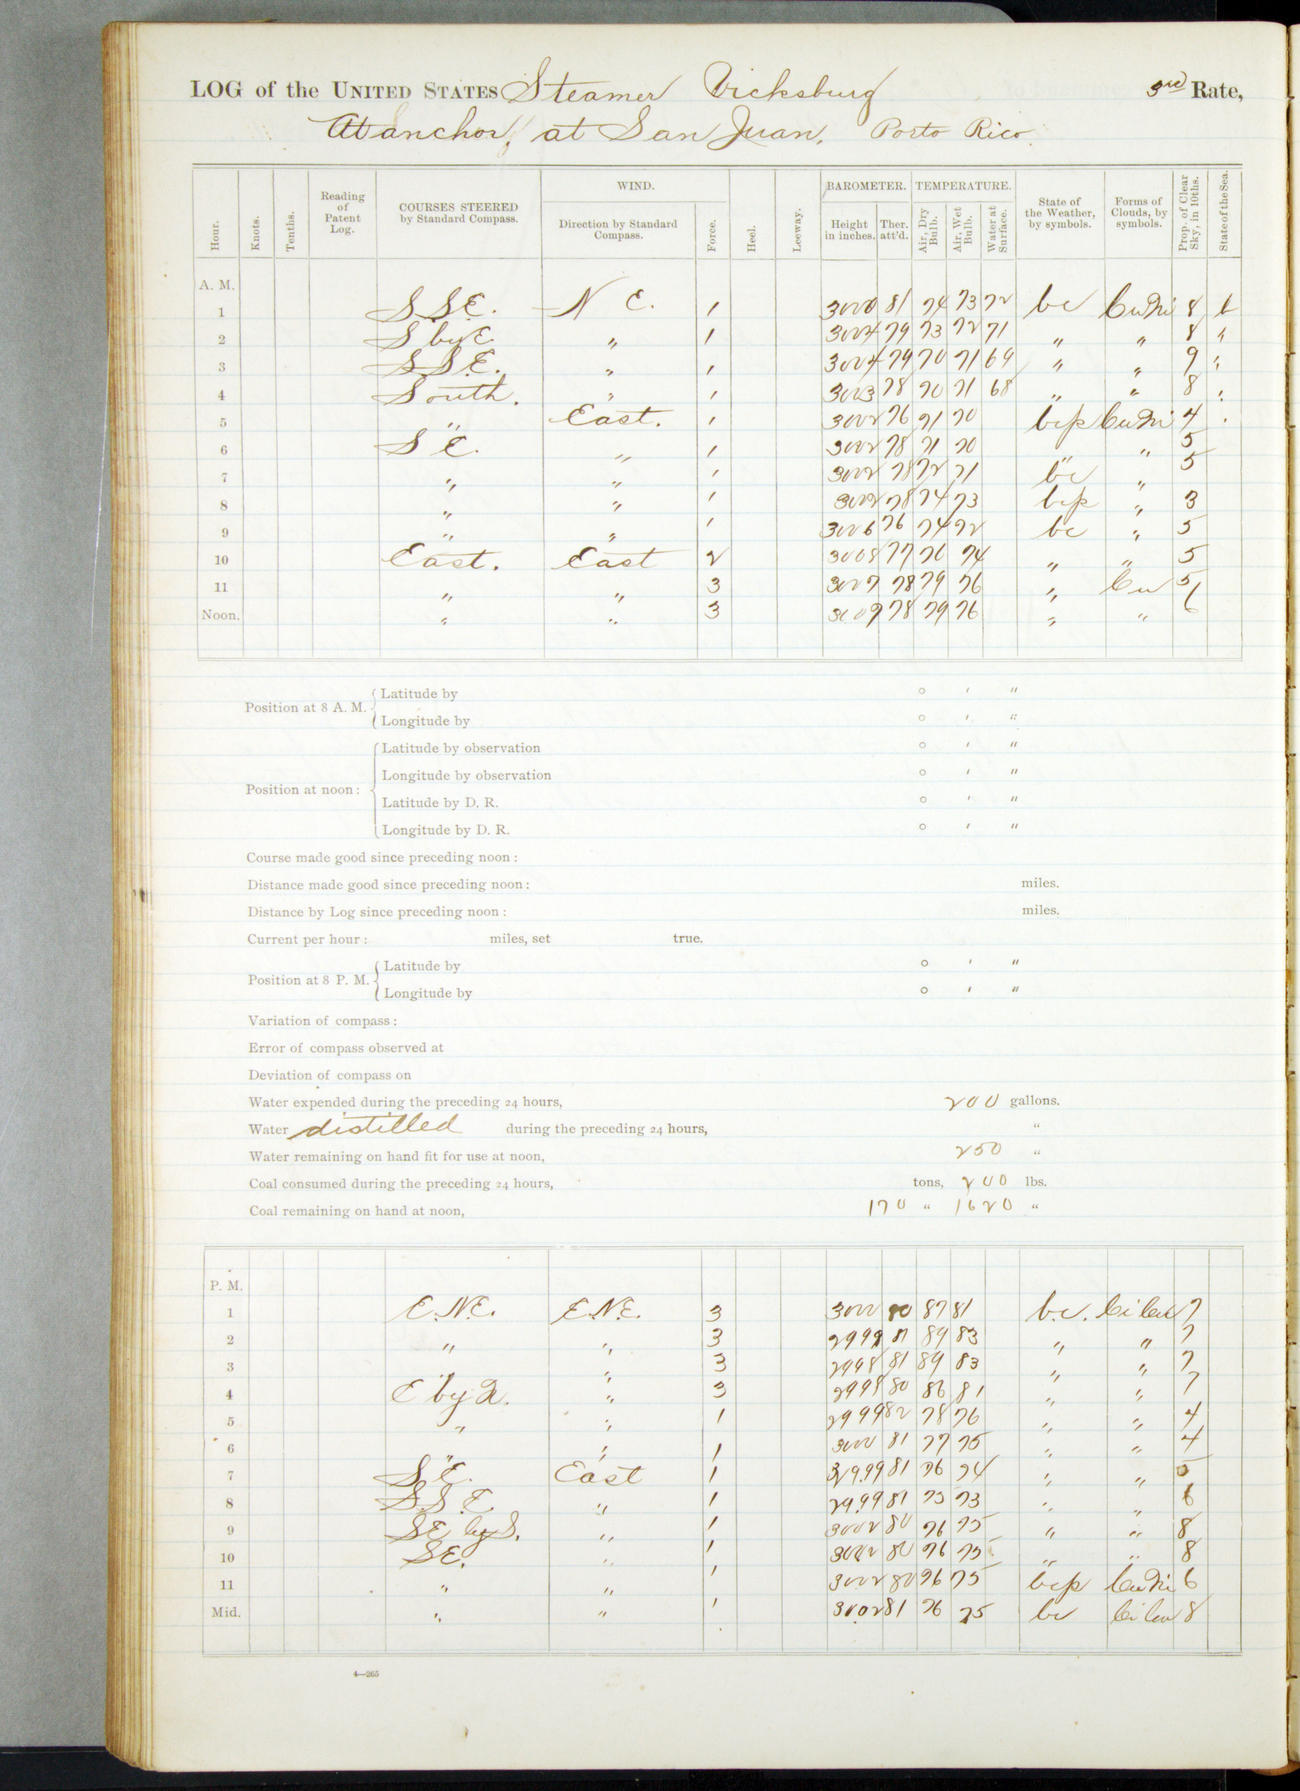 LOG of the UNITED STATES Steamer Vicksburg 3rd Rate,
At anchor, at San Juan, Porto Rico.
Hour. Knots. Tenths. Reading of Patent Log. COURSES STEERED by Standard Compass. WIND. Direction by Standard Compass. Force. Heel. Leeway. BAROMETER. Height in inches. Ther. att'd. TEMPERATURE. Air, Dry Bulb. Air, Wet Bulb. Water at Surface. State of the Weather, by symbols. Forms of Clouds, by symbols. Prop. of Clear Sky, in 10ths. State of the Sea.
A. M.
1 S.S.E. N E. 1 3000 81 74 73 72 bc CuNi 8
2 S by E " 1 3004 79 73 72 71 " " 8 "
3 S.S.E. " 1 3004 79 70 71 69 " " 9 "
4 South. " 1 3003 78 70 71 68 " " 8 "
5 " East. 1 3002 76 71 70 bcp CuNi 4
6 S E. " 1 3002 78 71 70 " " 5
7 " " 1 3002 78 72 71 bc " 5
8 " " 1 3002 78 74 73 bcp " 3
9 " " 1 3006 76 74 72 bc " 5
10 East. East 2 3008 77 76 74 " " 5
11 " " 3 3007 78 79 76 " Cu 5
Noon. " " 3 3007 78 79 76 " " 6
Position at 8 A. M. Latitude by ° ' "
Longitude by ° ' "
Position at noon: Latitude by observation ° ' "
Longitude by observation ° ' "
Latitude by D. R. ° ' "
Longitude by D. R. ° ' "
Course made good since preceding noon:
Distance made good since preceding noon: miles.
Distance by Log since preceding noon: miles.
Current per hour: miles, set true.
Position at 8 P. M. Latitude by ° ' "
Longitude by ° ' "
Variation of compass:
Error of compass observed at
Deviation of compass on
Water expended during the preceding 24 hours, 200 gallons.
Water distilled during the preceding 24 hours, "
Water remaining on hand fit for use at noon, 250 "
Coal consumed during the preceding 24 hours, tons, 200 lbs.
Coal remaining on hand at noon, 170 " 1620 "
P. M.
1 E.N.E. E.N.E. 3 3000 80 87 81 b.c. Ci Cu 7
2 " " 3 2999 81 89 83 " " 7
3 " " 3 2998 81 89 83 " " 7
4 E by N. " 3 2998 80 86 81 " " 7
5 " " 1 2999 82 78 76 " " 4
6 " " 1 3000 81 77 75 " " 4
7 S.E. East 1 29.99 81 76 74 " " 5
8 S.S.E. " 1 29.99 81 75 73 " " 6
9 SE by S. " 1 3002 80 76 75 " " 8
10 SE. " 1 3002 80 76 75 " " 8
11 " " 1 3002 80 76 75 bcp CuNi 6
Mid. " " 1 3002 81 76 75 bc Ci Cu 8
4—265